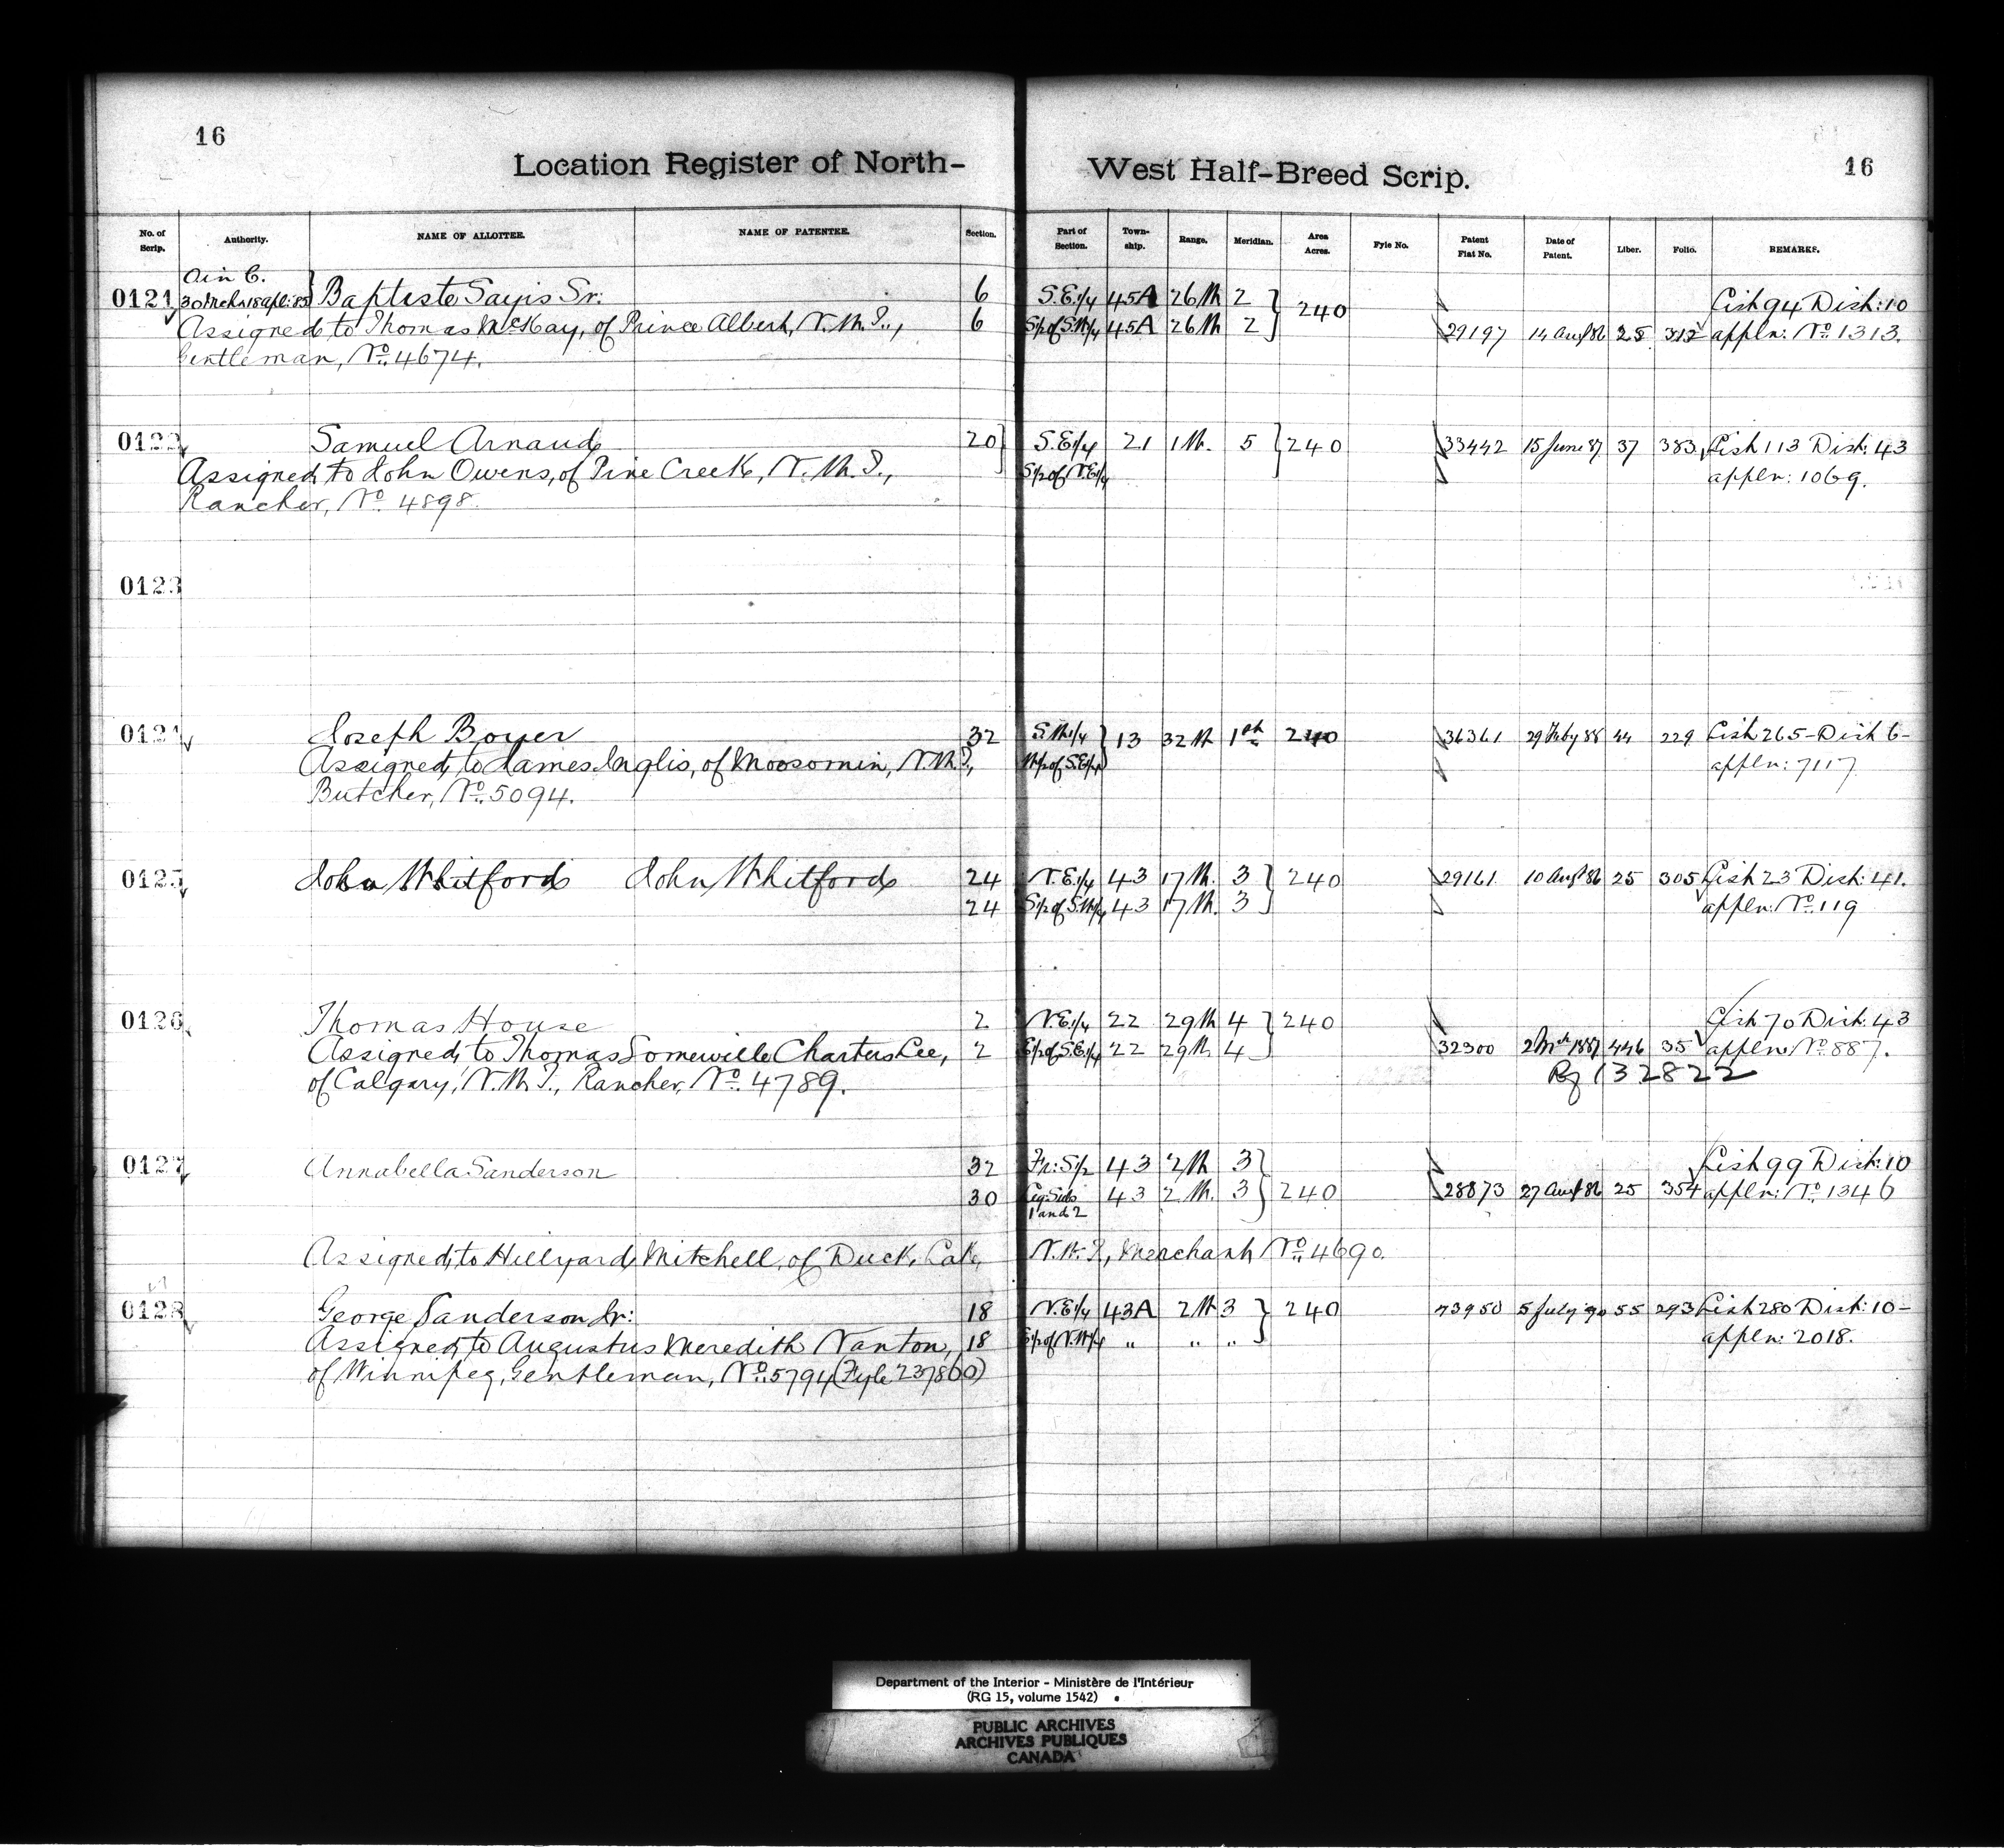 16
16
Location Register of North-West Half-Breed Scrip.
No. of Scrip. Authority. NAME OF ALLOTTEE. NAME OF PATENTEE. Section. Part of Section. Town-ship. Range. Meridian. Area Acres. Fyle No. Patent Fiat No. Date of Patent. Liber. Folio. REMARKS.
O in C.
0121 30 Mch & 18 apl: 85 Baptiste Sayis Sr: 6 S.E.1/4 45A 26 W 2 240 List 94 Dist: 10
Assigned to Thomas McKay, of Prince Albert, N.W.T., 6 S1/2 of S.W1/4 45A 26 W 2 29197 14 Augt 86 25 312 appln: No. 1313.
Gentleman, No. 4674.
0122 Samuel Arnaud 20 S.E1/4 21 1 W. 5 240 33442 15 June 87 37 383 List 113 Dist: 43
Assigned to John Owens, of Pine Creek, N.W.T., S1/2 of N.E1/4 appln: 1069.
Rancher, No. 4898.
0123
0124 Joseph Boyer 32 S.W.1/4 13 32 W 1st 240 36361 29 Feby 88 44 229 List 265 - Dist 6 -
Assigned to James Inglis, of Moosomin, N.W.T., W1/2 of S.E1/4 appln: 7117
Butcher, No. 5094.
0125 John Whitford John Whitford 24 N.E.1/4 43 17 W. 3 240 29161 10 Augt 86 25 305 List 23 Dist: 41.
24 S1/2 of S.W1/4 43 17 W. 3 appln: No. 119
0126 Thomas House 2 N.E.1/4 22 29 W 4 240 List 70 Dist: 43
Assigned to Thomas Somerville Charters Lee, 2 E1/2 of S.E1/4 22 29 W 4 32300 2 Mch 1887 446 35 appln: No. 887.
of Calgary, N.W.T., Rancher, No. 4789. Rf 132822
0127 Annabella Sanderson 32 Fr: S1/2 43 2 W 3 List 99 Dist: 10
30 Leg: Subs 43 2 W. 3 240 28873 27 Augt 86 25 354 appln: No. 1346
1 and 2
Assigned to Hillyard Mitchell, of Duck Lake, N.W.T., Merchant, No. 4690.
0128 George Sanderson Jr: 18 N.E1/4 43A 2 W 3 240 73950 5 July 90 55 293 List 280 Dist: 10 -
Assigned to Augustus Meredith Nanton, 18 S1/2 of N.W1/4 " " " appln: 2018.
of Winnipeg, Gentleman, No. 5794 (Fyle 237860)
Department of the Interior - Ministère de l'Intérieur
(RG 15, volume 1542)
PUBLIC ARCHIVES
ARCHIVES PUBLIQUES
CANADA